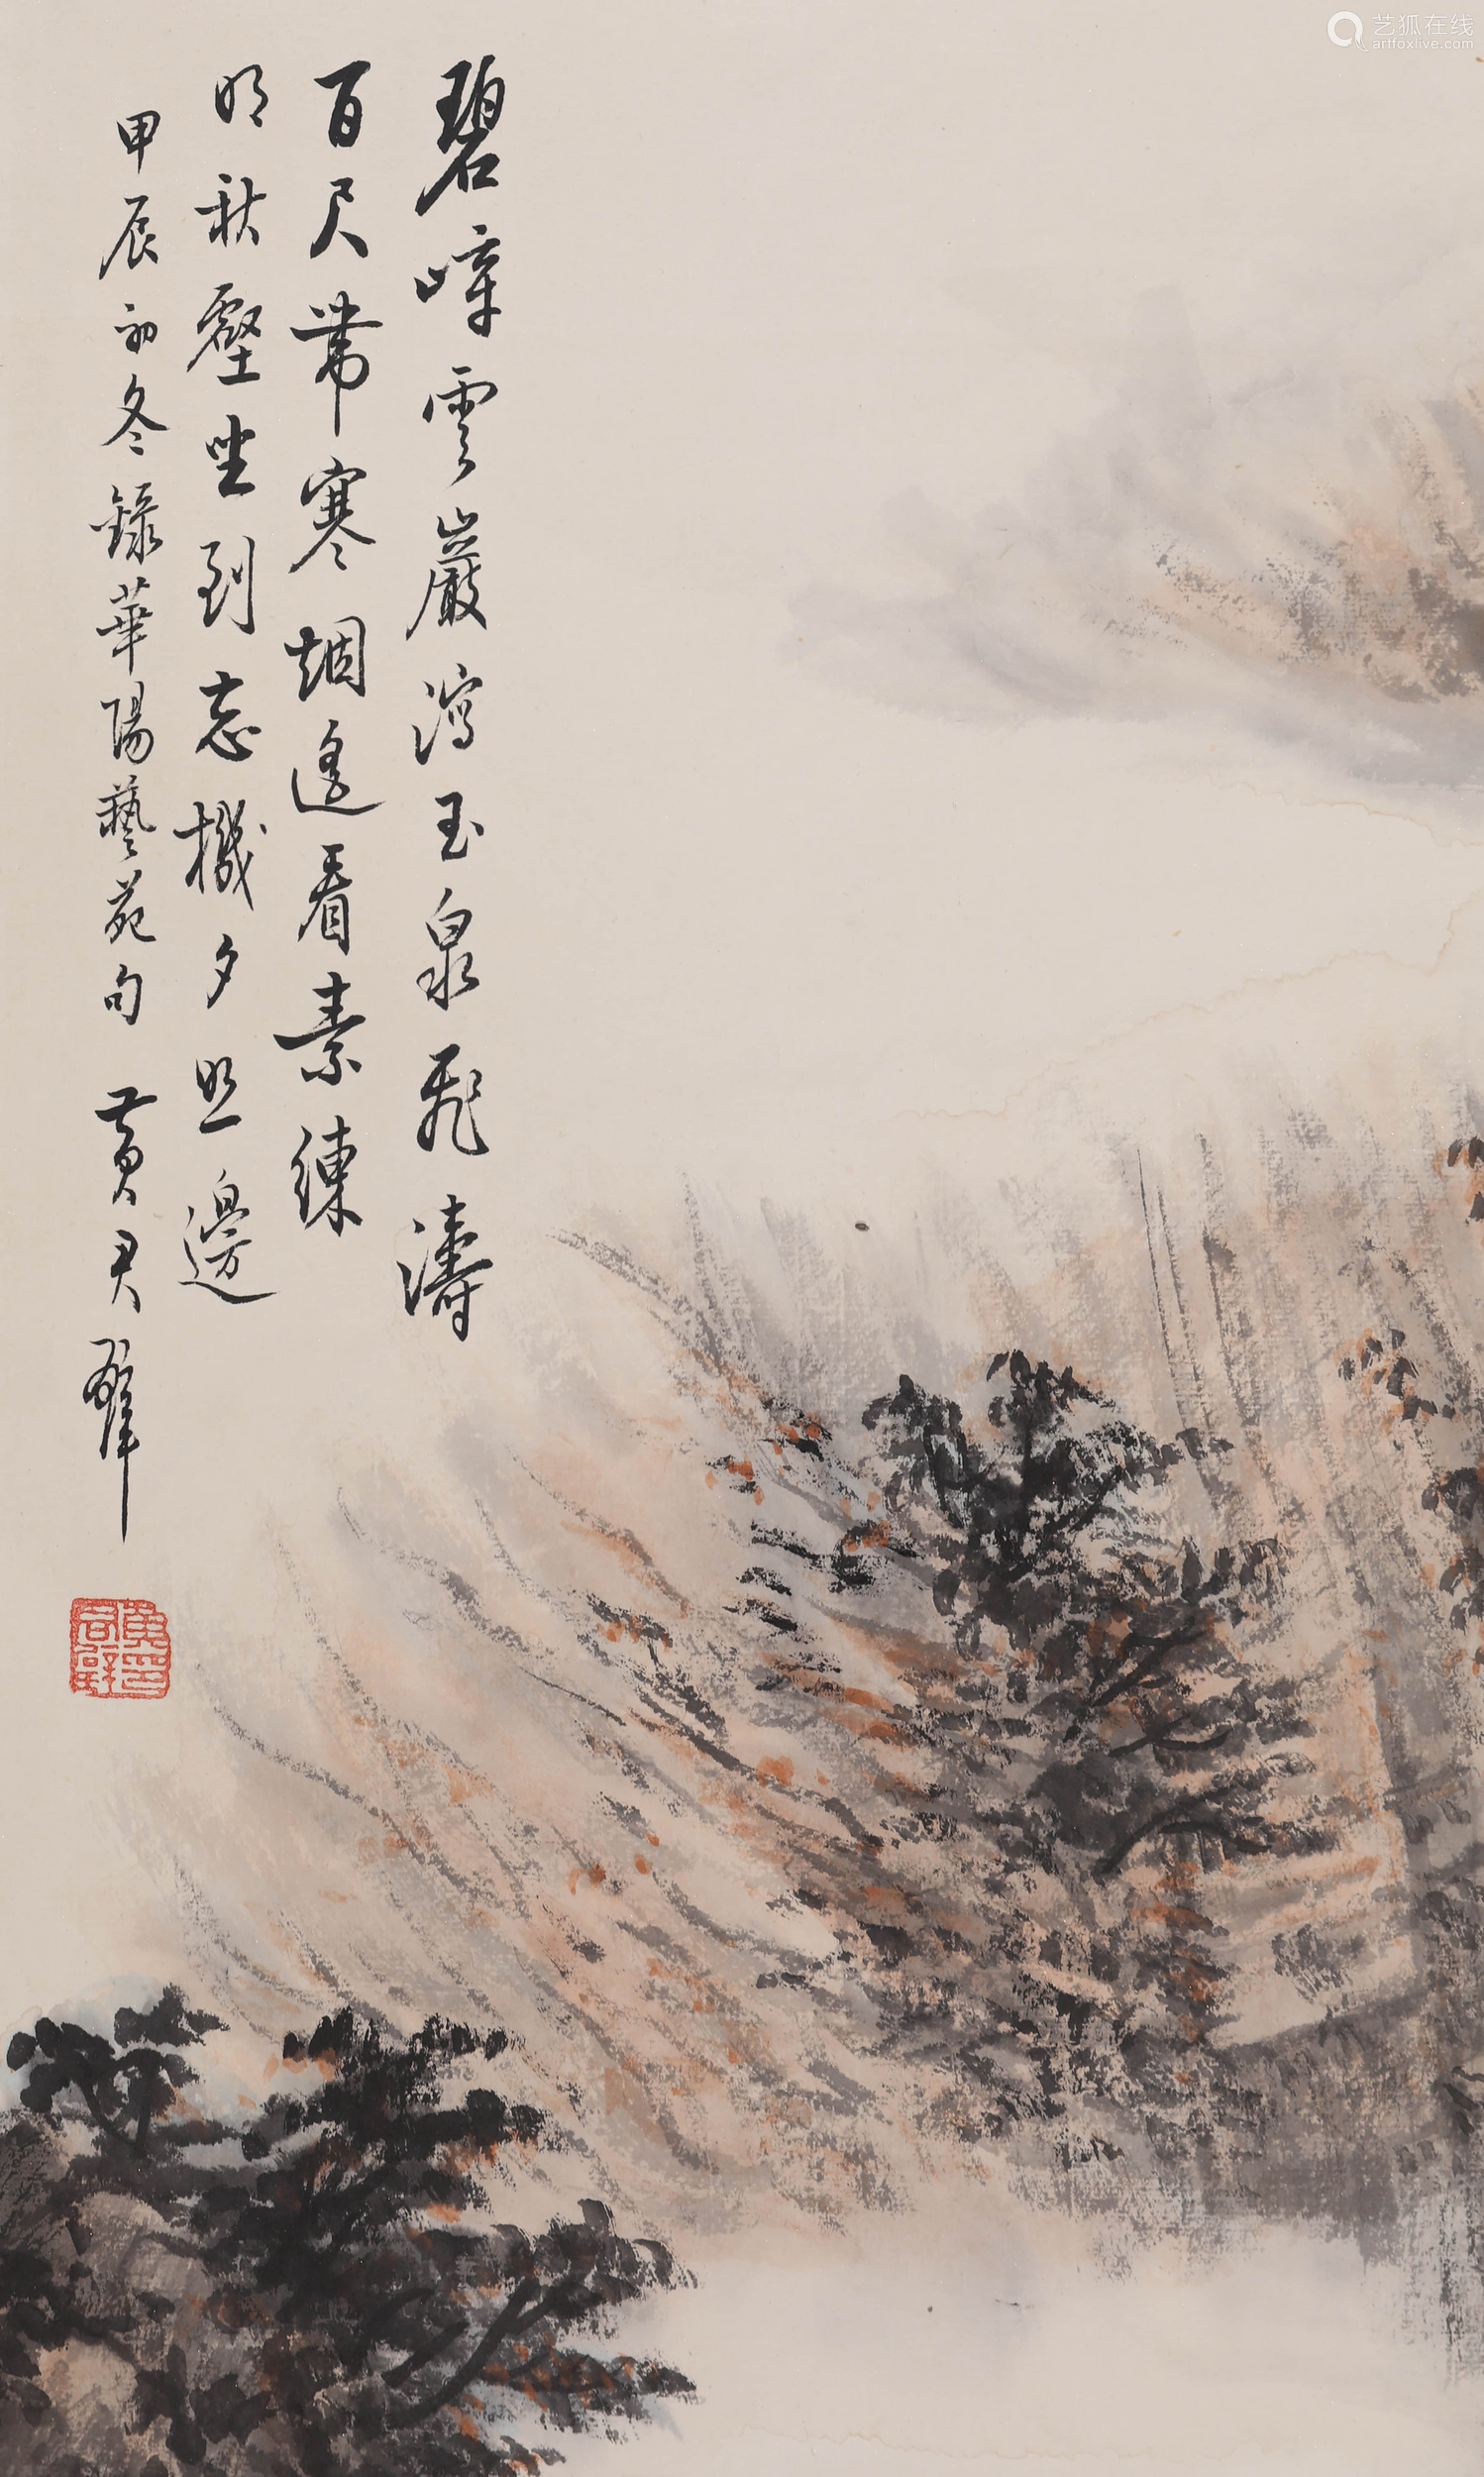 碧嶂雲巖瀉玉泉飛濤
百尺帶寒烟遥看素練
明秋壑坐到忘機夕照邊
甲辰初冬錄華陽藝苑句 黄君璧
黄君璧印
艺狐在线
artfoxlive.com